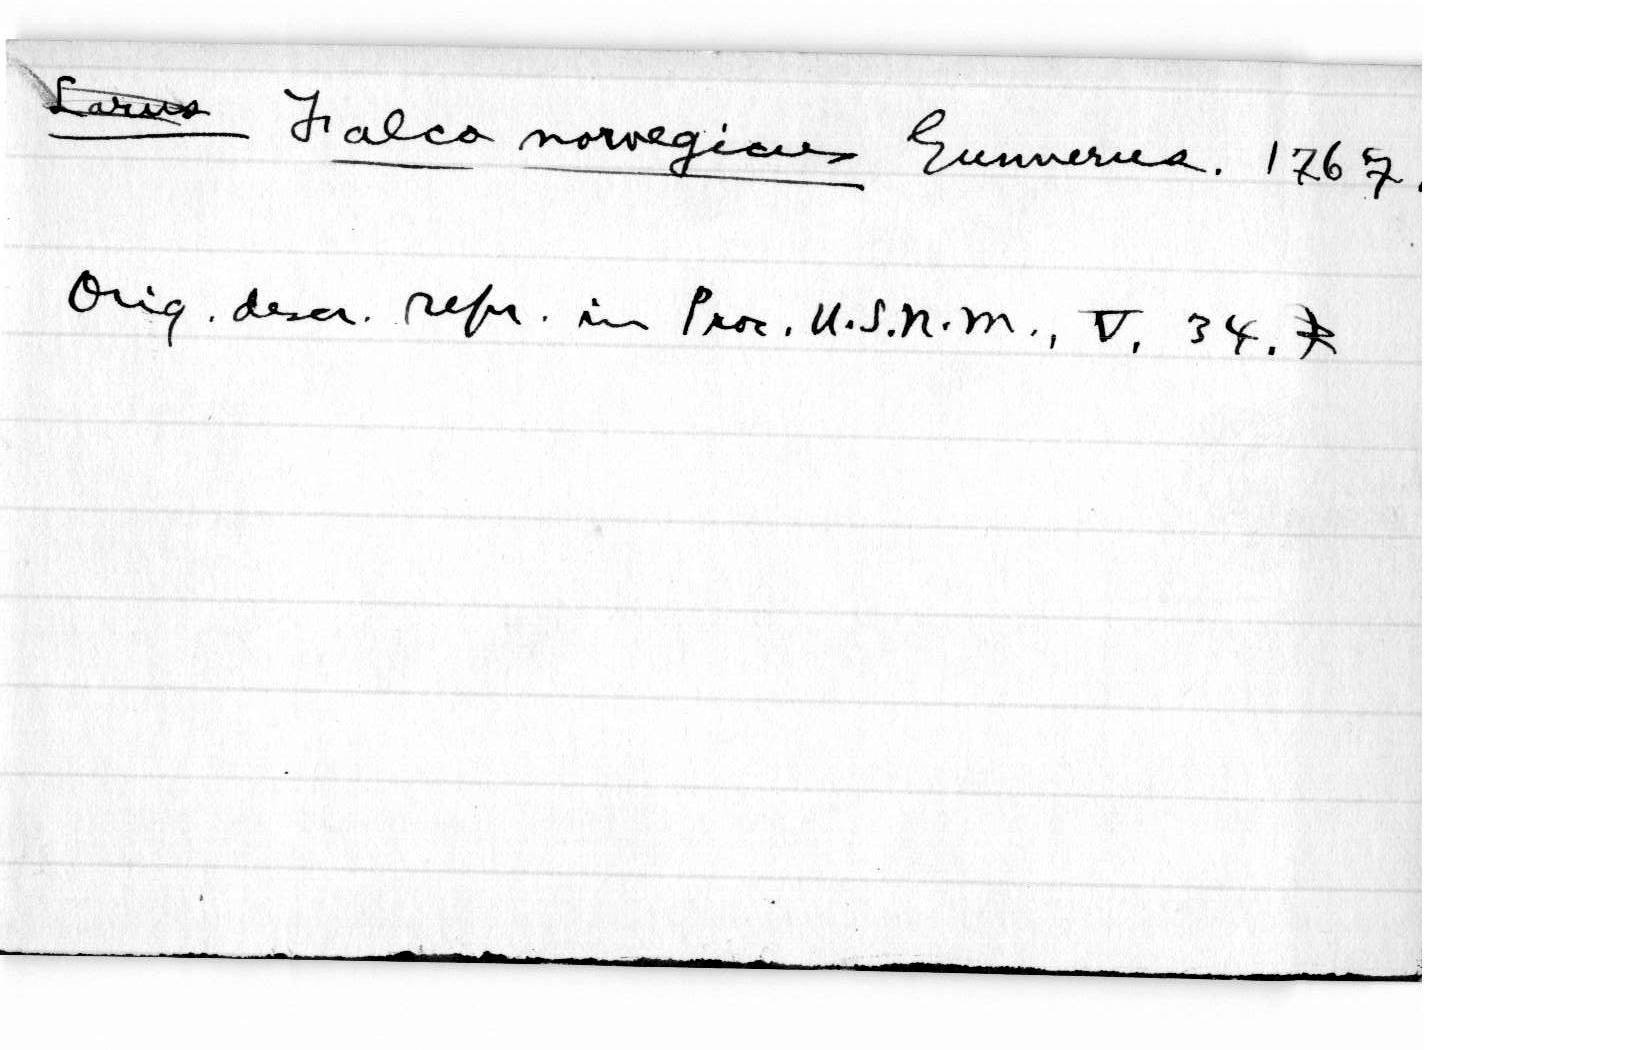 Larus Falco norvegicus Gunnerus. 1767.
Orig. descr. repr. in Proc. U.S.N.M., V, 34.